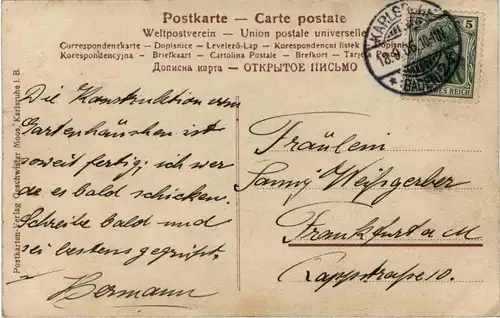 Postkarte – Carte postale
Weltpostverein – Union postale universelle
Correspondenzkarte – Dopisnice – Levelező-Lap – Korespondencni listek
Korespondencyjna – Briefkaart – Cartolina Postale – Brefkort
Дописна карта – ОТКРЫТОЕ ПИСЬМО
KARLSRUHE
18.9.06
BADEN
5
REICH
Postkarten-Verlag Geschwister Moos, Karlsruhe i. B.
Die Konstruktion vom
Gartenhäuschen ist
soweit fertig; ich wer
de es bald schicken.
Schreibe bald und
sei bestens gegrüßt.
Hermann
Fräulein
Fanny Weißgerber
Frankfurt a M
Rappstraße 10.